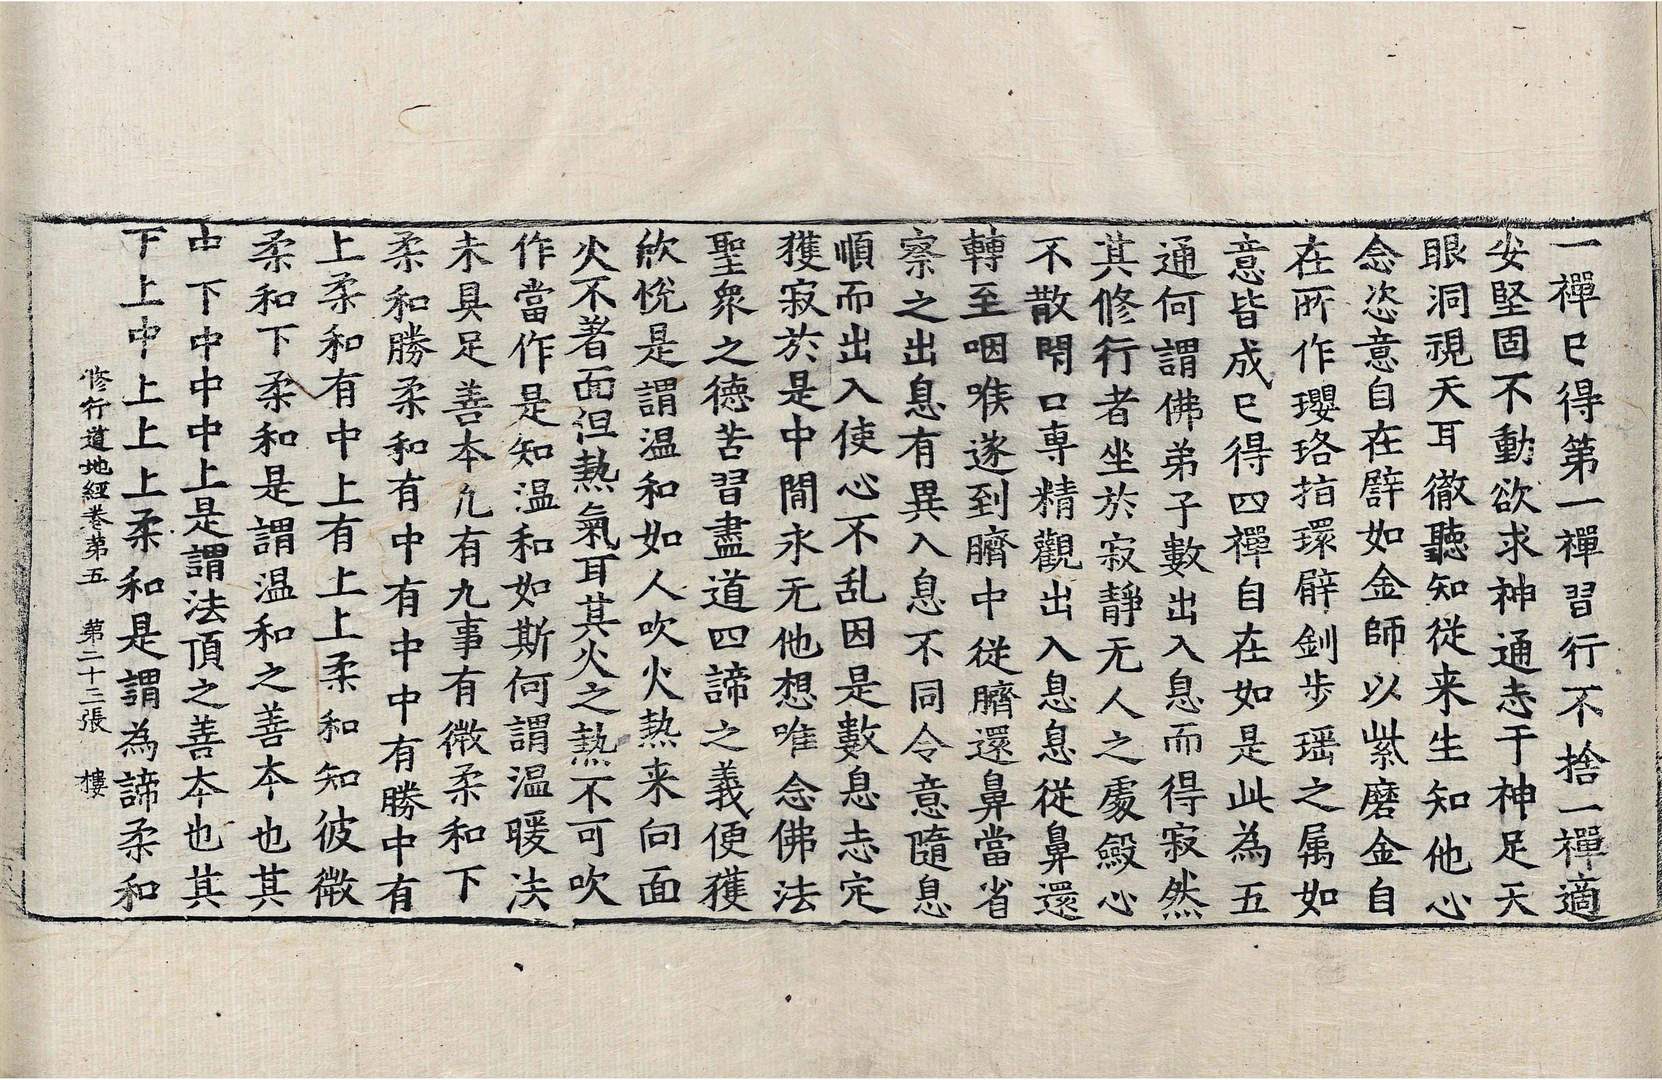 一禪已得第一禪習行不捨一禪適
安堅固不動欲求神通志于神足天
眼洞視天耳徹聽知從来生知他心
念恣意自在譬如金師以紫磨金自
在所作瓔珞指環臂釧步瑶之属如
意皆成已得四禪自在如是此為五
通何謂佛弟子數出入息而得寂然
其修行者坐於寂靜无人之處斂心
不散閇口專精觀出入息息從鼻還
轉至咽喉遂到臍中從臍還鼻當省
察之出息有異入息不同令意隨息
順而出入使心不乱因是數息志定
獲寂於是中間永无他想唯念佛法
聖衆之德苦習盡道四諦之義便獲
欣恱是謂温和如人吹火熱来向面
火不著面但熱氣耳其火之熱不可吹
作當作是知温和如斯何謂温暖法
未具足善本凢有九事有微柔和下
柔和勝柔和有中有中中有勝中有
上柔和有中上有上上柔和知彼微
柔和下柔和是謂温和之善本也其
中下中中中上是謂法頂之善本也其
下上中上上上柔和是謂為諦柔和
修行道地經卷第五 第二十三張 樓